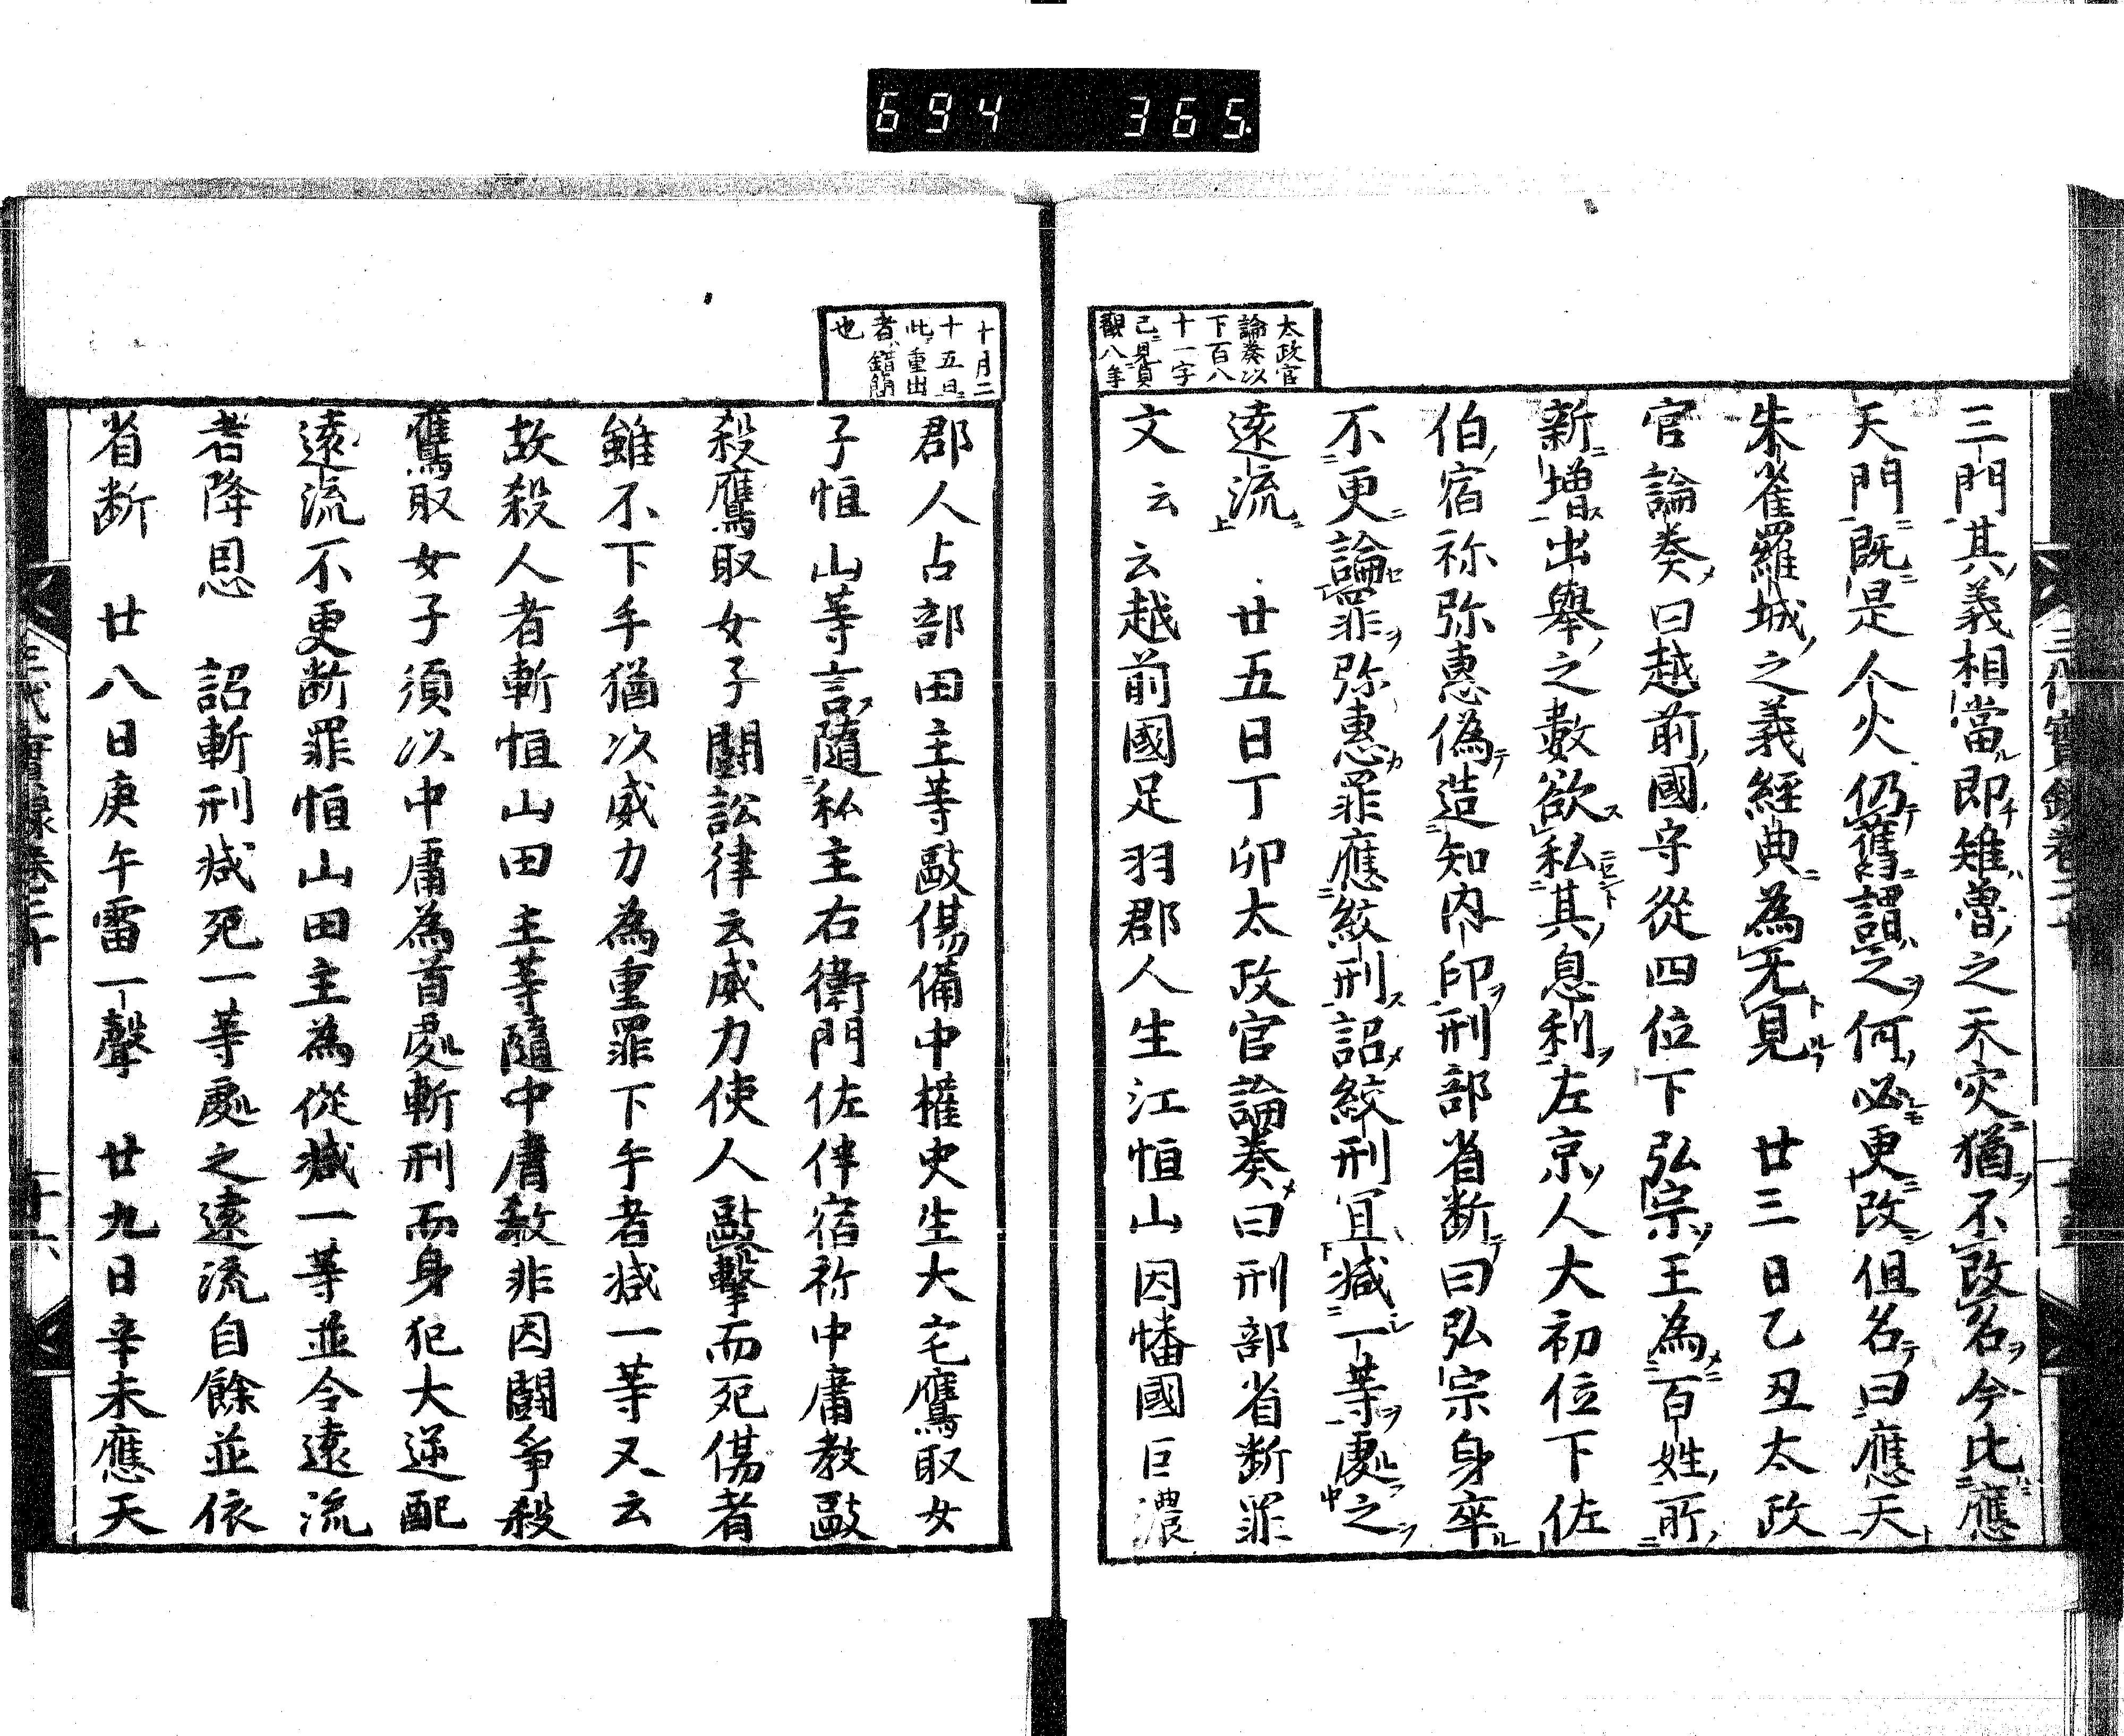 694 365.
太政官
論奏以
下百八
十一字
已見貞
觀八年
三門其義相當即雉魯之天灾猶不改名今比應
天門既是人火仍舊謂之何必更改但名曰應天
朱雀羅城之義經典為无見 廿三日乙丑太政
官論奏曰越前國守從四位下弘宗王為百姓所
新增出擧之數欲私其息利左京人大初位下佐
伯宿祢弥惠偽造知内印刑部省断曰弘宗身卒
不更論罪弥惠罪應絞刑詔絞刑冝減一等處之
遠流 廿五日丁卯太政官論奏曰刑部省断罪
文云云越前國足羽郡人生江恒山因幡國巨濃
十月二
十五日
此重出
者錯簡
也
郡人占部田主等敺傷備中權史生大宅鷹取女
子恒山等言隨私主右衛門佐伴宿祢中庸教敺
殺鷹取女子闘訟律云威力使人敺擊而死傷者
雖不下手猶以威力為重罪下手者減一等又云
故殺人者斬恒山田主等隨中庸教非因闘爭殺
鷹取女子須以中庸為首處斬刑而身犯大逆配
遠流不更断罪恒山田主為從減一等並令遠流
者降恩 詔斬刑減死一等處之遠流自餘並依
省断 廿八日庚午雷一聲 廿九日辛未應天
三代實録卷二十